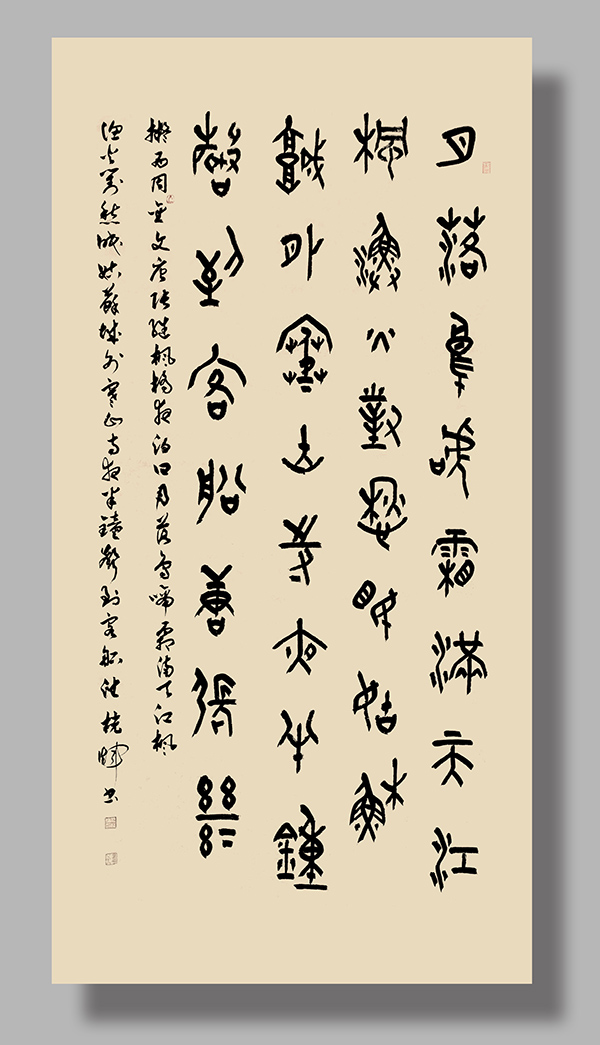 月落烏啼霜滿天江
楓漁火對愁眠姑蘇
城外寒山寺夜半鐘
聲到客船唐張繼
擬西周金文唐張繼楓橋夜泊曰月落烏啼霜滿天江楓
漁火對愁眠姑蘇城外寒山寺夜半鐘聲到客船輝書